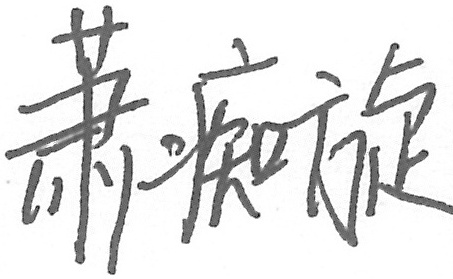 萧痴旋